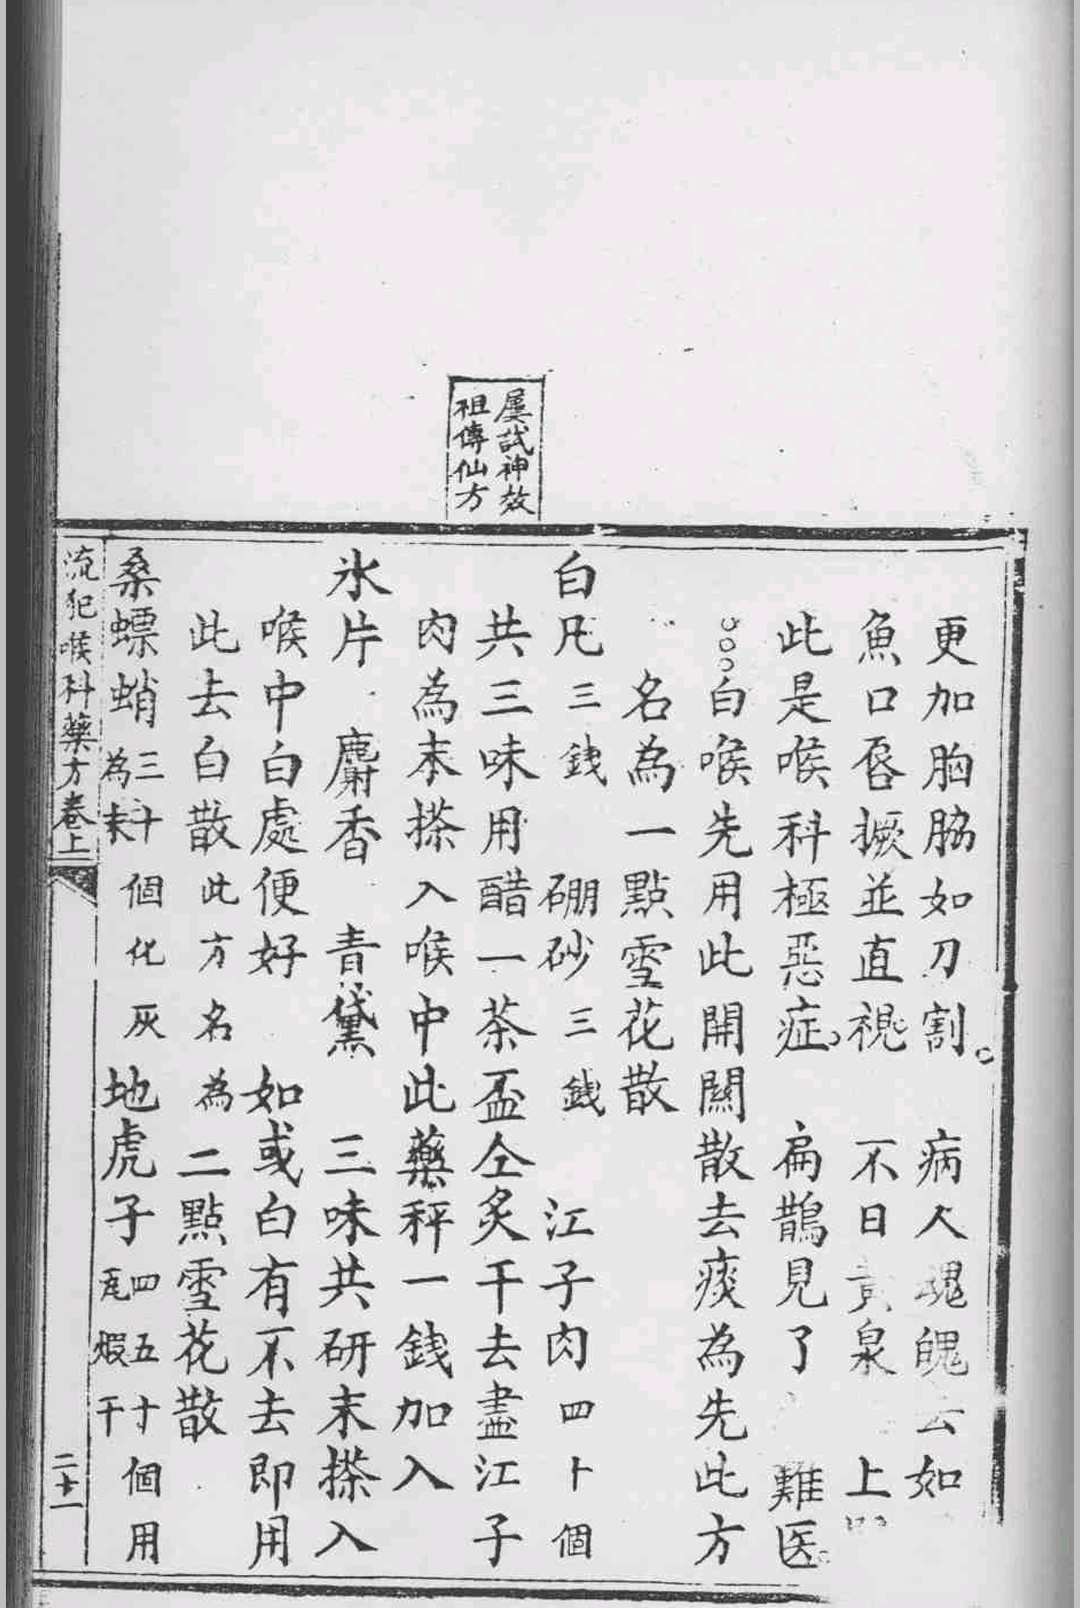 屢試神效
祖傳仙方
更加胸脇如刀割。病人魂魄去如
魚口唇撅並直視 不日黃泉 上
此是喉科極惡症。扁鵲見了 難医。
白喉先用此開關散去痰為先此方
名為一點雪花散
白凡三錢 硼砂三錢 江子肉四卜個
共三味用醋一茶盃仝炙干去盡江子
肉為末搽入喉中此藥秤一錢加入
氷片 麝香 青黛 三味共研末搽入
喉中白處便好 如或白有不去即用
此去白散此方名為二點雪花散
桑螵蛸三十個化灰為末地虎子四五十個用瓦煆干
流犯喉科藥方卷上
二十一